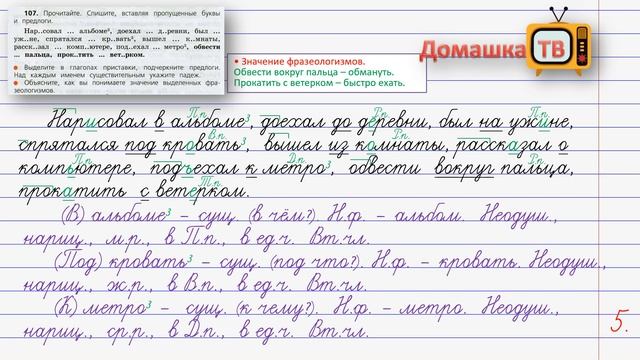 107. Прочитайте. Спишите, вставляя пропущенные буквы
и предлоги.
Нар..совал ... альбоме³, доехал ... д..ревни, был ...
уж..не, спрятался ... кр..вать³, вышел ... к..мнаты,
расск..зал ... комп..ютере, под..ехал ... метро³, обвести
... пальца, прок..тить ... вет..рком.
● Выделите в глаголах приставки, подчеркните предлоги.
Над каждым именем существительным укажите падеж.
● Объясните, как вы понимаете значение выделенных фра-
зеологизмов.
• Значение фразеологизмов.
Обвести вокруг пальца – обмануть.
Прокатить с ветерком – быстро ехать.
Домашка
ТВ
П.п. Р.п. П.п.
Нарисовал в альбоме³, доехал до деревни, был на ужине,
В.п. Р.п.
спрятался под кровать³, вышел из комнаты, рассказал о
П.п. Д.п. Р.п.
компьютере, подъехал к метро³, обвести вокруг пальца,
Т.п.
прокатить с ветерком.
(В) альбоме³ – сущ. (в чём?). Н.ф. – альбом. Неодуш.,
нариц., м.р., в П.п., в ед.ч. Вт.чл.
(Под) кровать³ – сущ. (под что?). Н.ф. – кровать. Неодуш.,
нариц., ж.р., в В.п., в ед.ч. Вт.чл.
(К) метро³ – сущ. (к чему?). Н.ф. – метро. Неодуш.,
нариц., ср.р., в Д.п., в ед.ч. Вт.чл.
5.